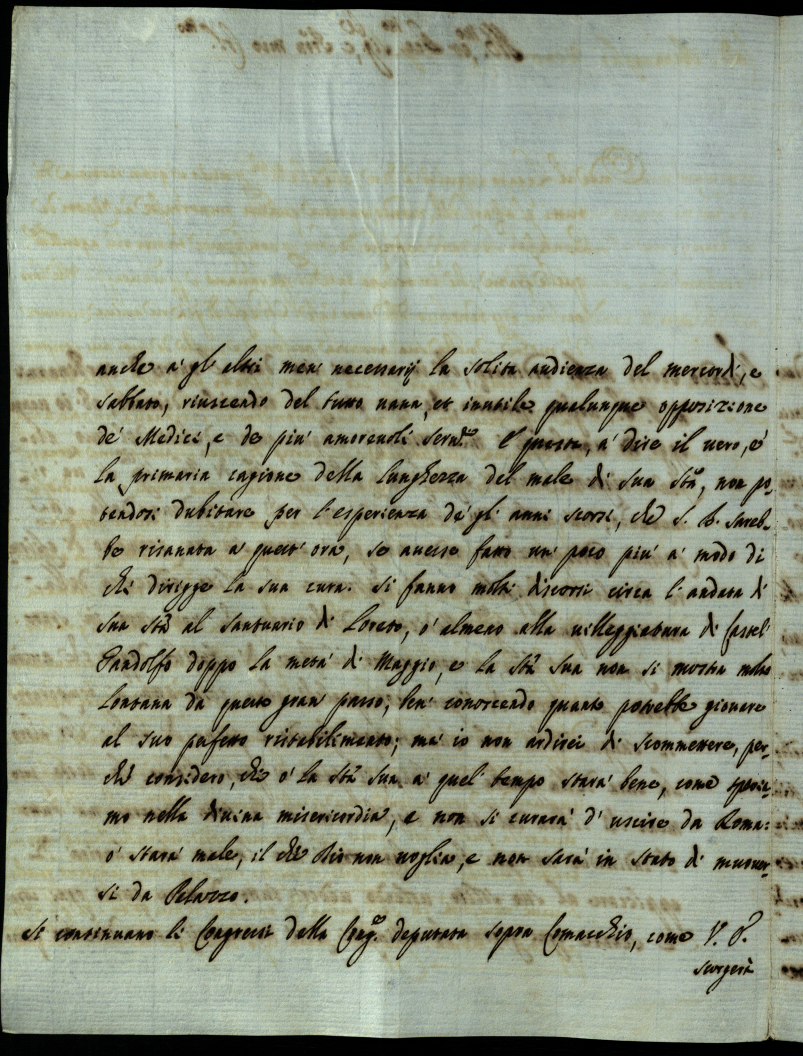 anche a' gl' altri men' necessarij la solita audienza del mercordi, e
sabbato, riuscendo del tutto uana, et inutile qualunque opposizione
de' Medici, e de più amoreuoli seru.ri E questa, a' dire il uero, è
la primaria cagione della lunghezza del male di sua Stà, non po-
tendosi dubitare per l'esperienza de' gl' anni scorsi, che S. B. sareb-
be risanata a quest' ora, se auesse fatto un' poco più a' modo di
chi dirigge la sua cura. Si fanno molti discorsi circa l'andata di
sua Stà al santuario di Loreto, o' almeno alla uilleggiatura di Castel'
Gandolfo doppo la metà di Maggio, e la Stà sua non si mostra molto
lontana da questo gran' passo, ben' conoscendo quanto potrebbe giouare
al suo perfetto ristabilimento; mà io non ardirei di scommettere, per-
chè considero, che o' la Stà sua a' quel' tempo starà bene, come speria-
mo nella diuina misericordia, e non si curarà d' uscire da Roma:
o' starà male, il che Dio non uoglia, e non sarà in stato di muouer-
si da Palazzo.
Si continuano li Congressi della Cong.e deputata sopra Comacchio, come V. S.
scorgerà